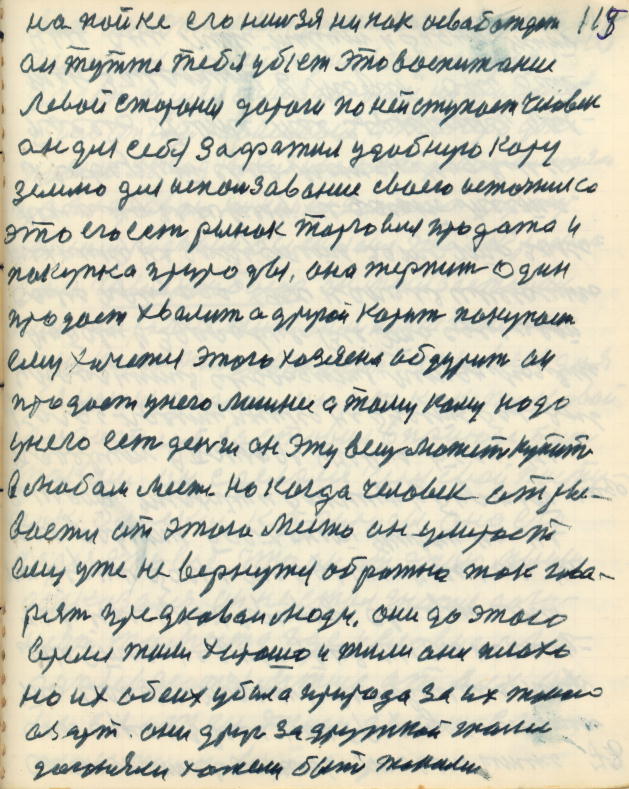 на пойке его нильзя никак освабождат 118
он тутже тебя убьет это воспитание
левой стороны дороги по ней ступает человек
он для себя зафатил удобную кору
землю для использавание своего источника
это его ест рынок торговля продажа и
покупка природы, она терпит один
продает хвалит а другой корит покупает
ему хочется этого хозяена обдурит он
продает у него мнение а тому кому надо
у него ест денги он эту вещ может купит
в любом месте. Но когда человек отры-
вается от этого место он умирает
ему уже не вернутся обратно так гова-
рят предковаи люди. они до этого
время жили хорошо и жили они плохо
но их обеих убила природа за их такое
азарт. они друг за дружкой гнали
догоняли хотели быт такими